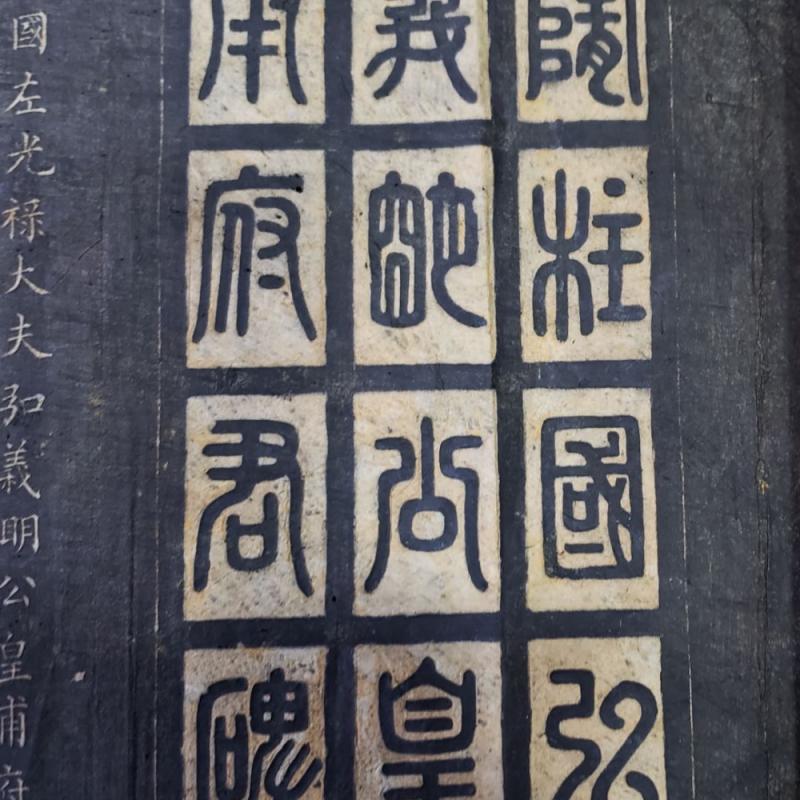 隋柱國弘
義明公皇
甫府君碑
國左光祿大夫弘義明公皇甫府